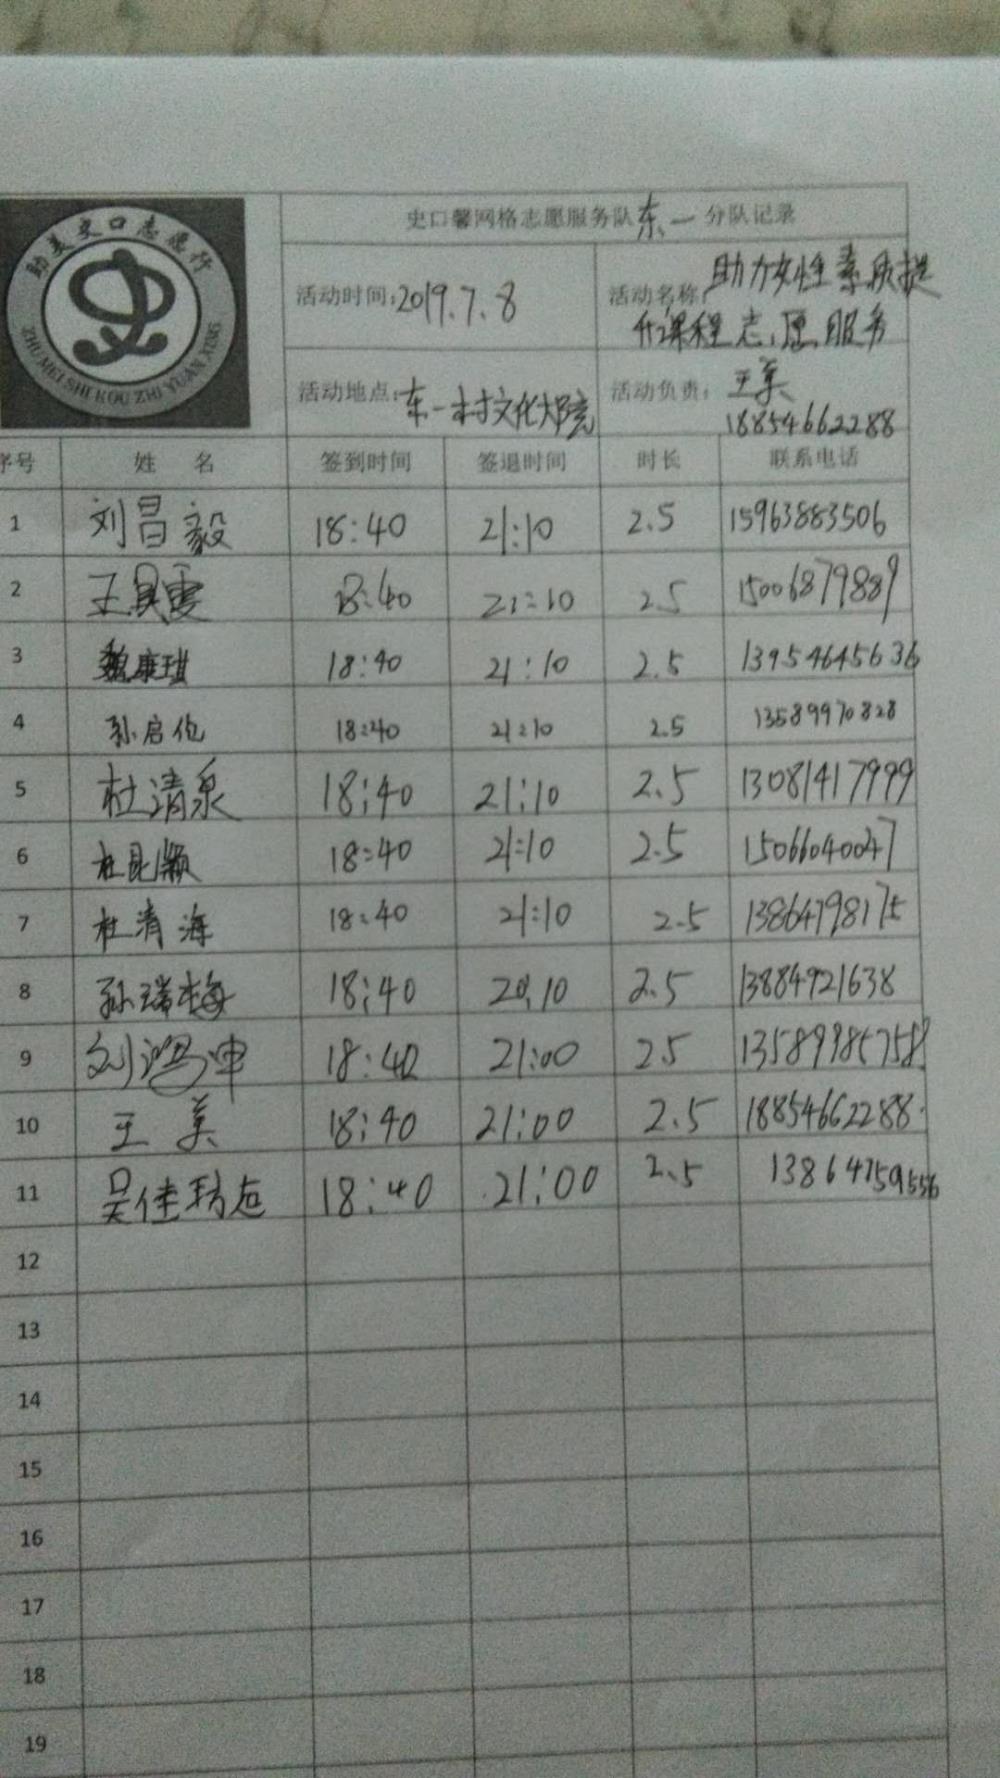 助美史口志愿行
ZHU MEI SHI KOU ZHI YUAN XING
史口馨网格志愿服务队东一分队记录
活动时间:2019.7.8 活动名称:助力女性素质提
升课程志愿服务
活动地点:东一村文化大院 活动负责:王美
18854662288
序号 姓 名 签到时间 签退时间 时长 联系电话
1 刘昌毅 18:40 21:10 2.5 15963883506
2 王 18:40 21:10 2.5 15006879889
3 魏康琪 18:40 21:10 2.5 13954645636
4 孙启伦 18:40 21:10 2.5 13589970828
5 杜清泉 18:40 21:10 2.5 13081417999
6 杜昆颖 18:40 21:10 2.5 15066040047
7 杜清海 18:40 21:10 2.5 13864798175
8 孙瑞梅 18:40 20:10 2.5 13884921638
9 刘鸿坤 18:40 21:00 2.5
10 王 美 18:40 21:00 2.5 18854662288
11 吴佳 18:40 21:00 2.5
12
13
14
15
16
17
18
19